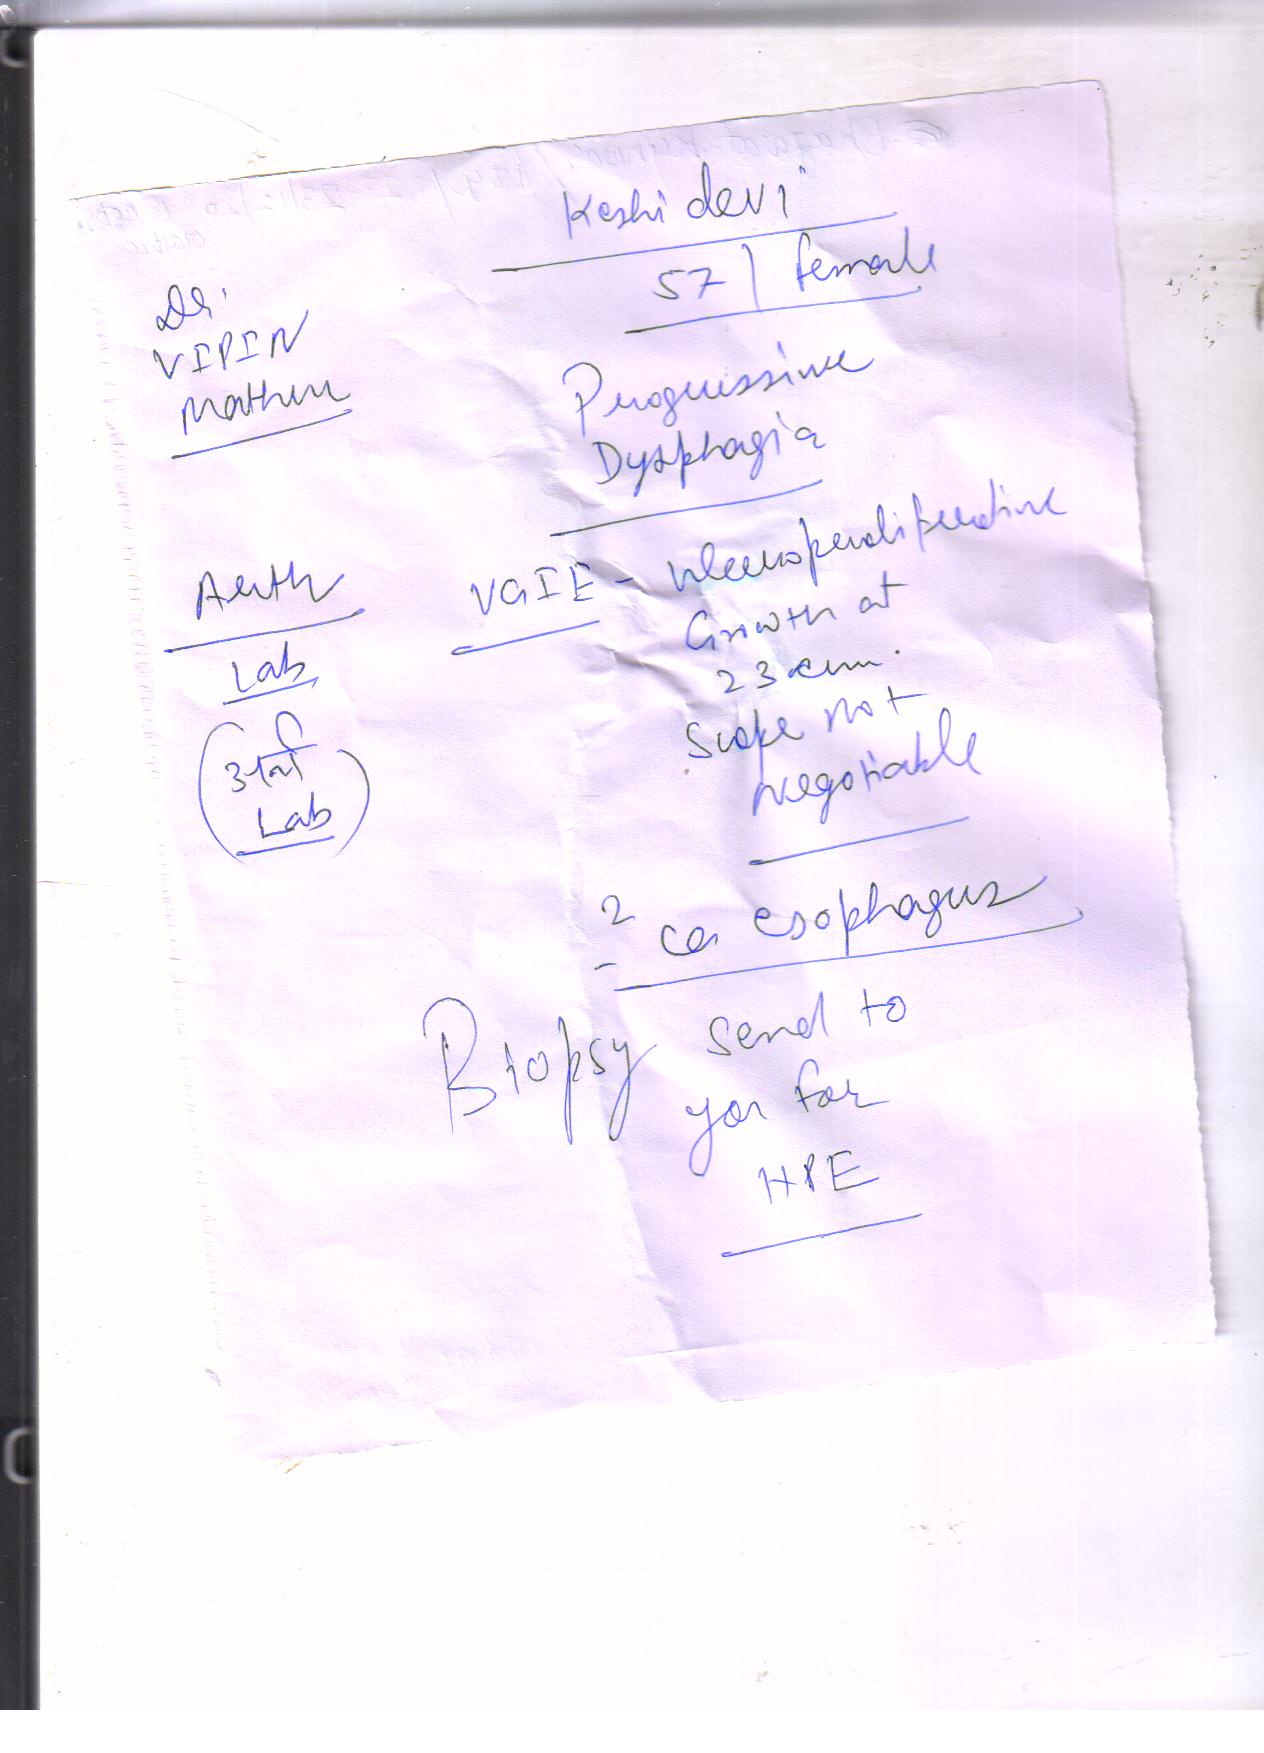 Keshi devi
57 / female
Dr.
VIPIN
Mathur
Progressive
Dysphagia
UGIE - Ulceroproliferative
Growth at
23 cm.
Scope not
negotiable
Lab
Lab
? ca esophagus
Biopsy send to
you for
HPE